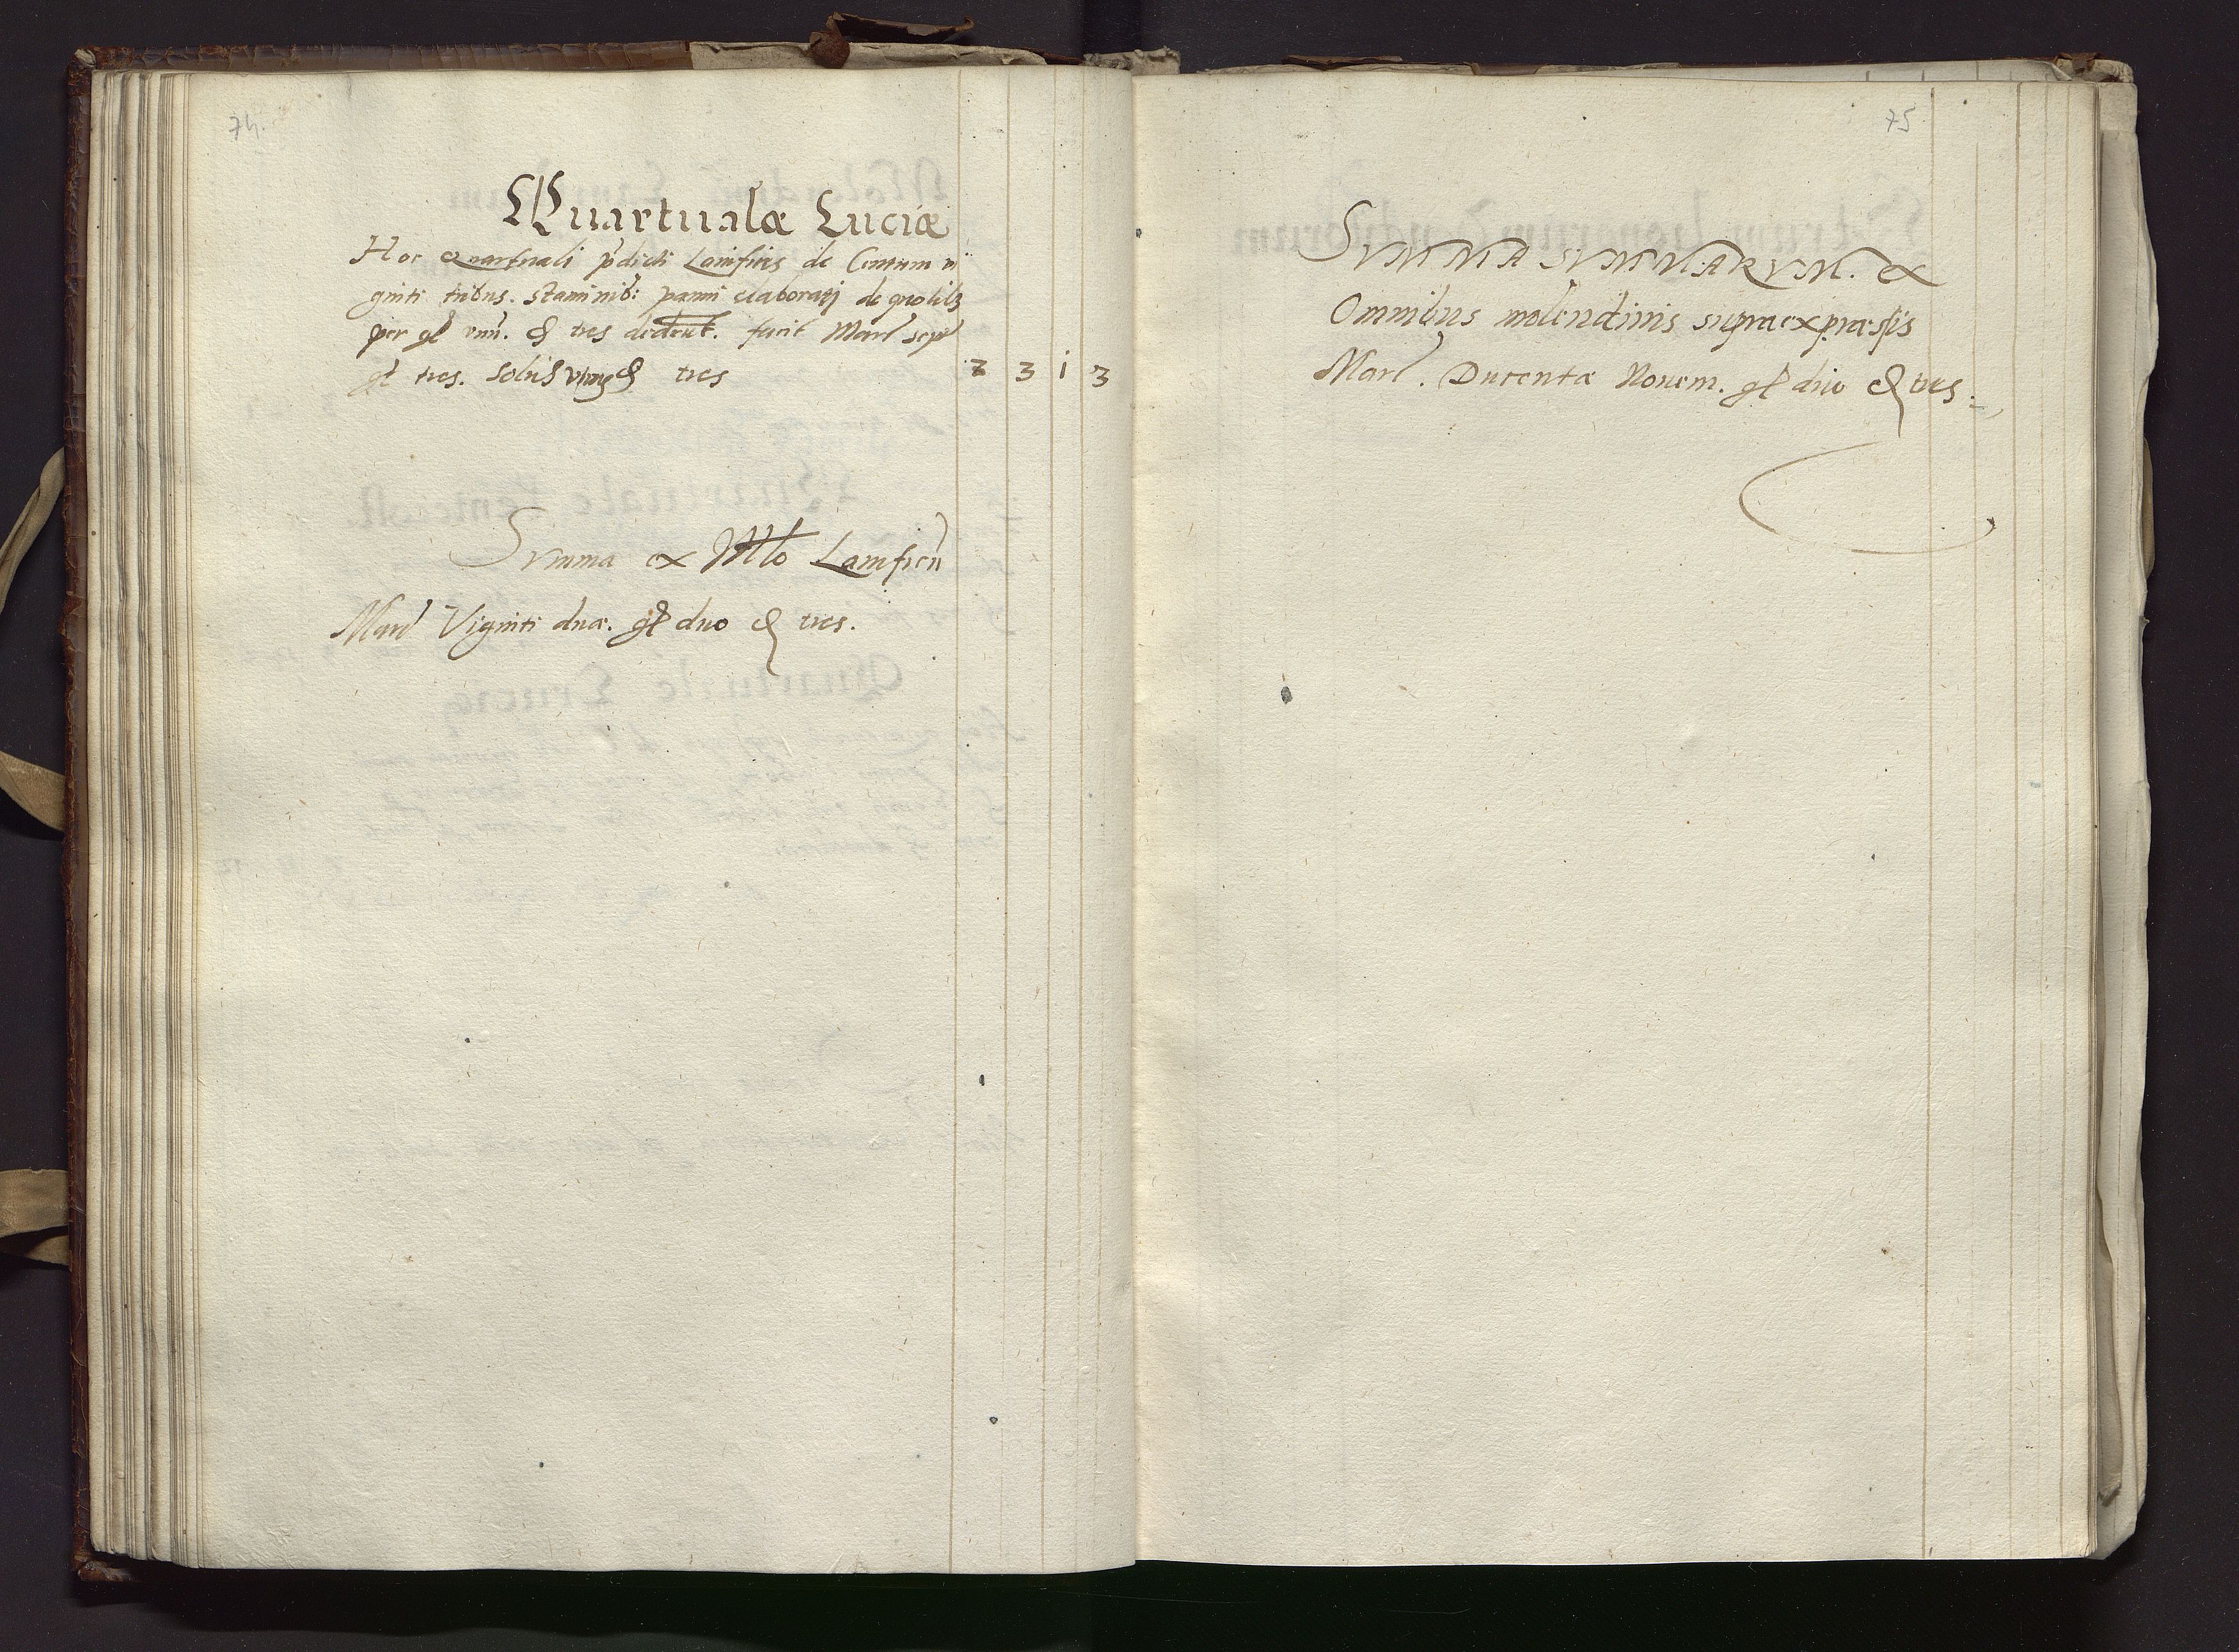 74.
Quartualæ Luciæ
Hoc Quartuali p̄dicti Lanifices de Centum vi
ginti tribus. Staminib: panni elaboratj de quolibz
per gͬ vnū. & tres dederūt. facit Marc Sept
gͬ tres. Solid vnū & tres 7 3 i 3
Summa ex Mlo Lanificū
Marc Viginti duæ. gͬ duo & tres.
75
SVMMA SVMMARVM. ex
Omnibus molendinis supraexpræssis
Marc. Ducentæ Nouem. gͬ duo & tres.